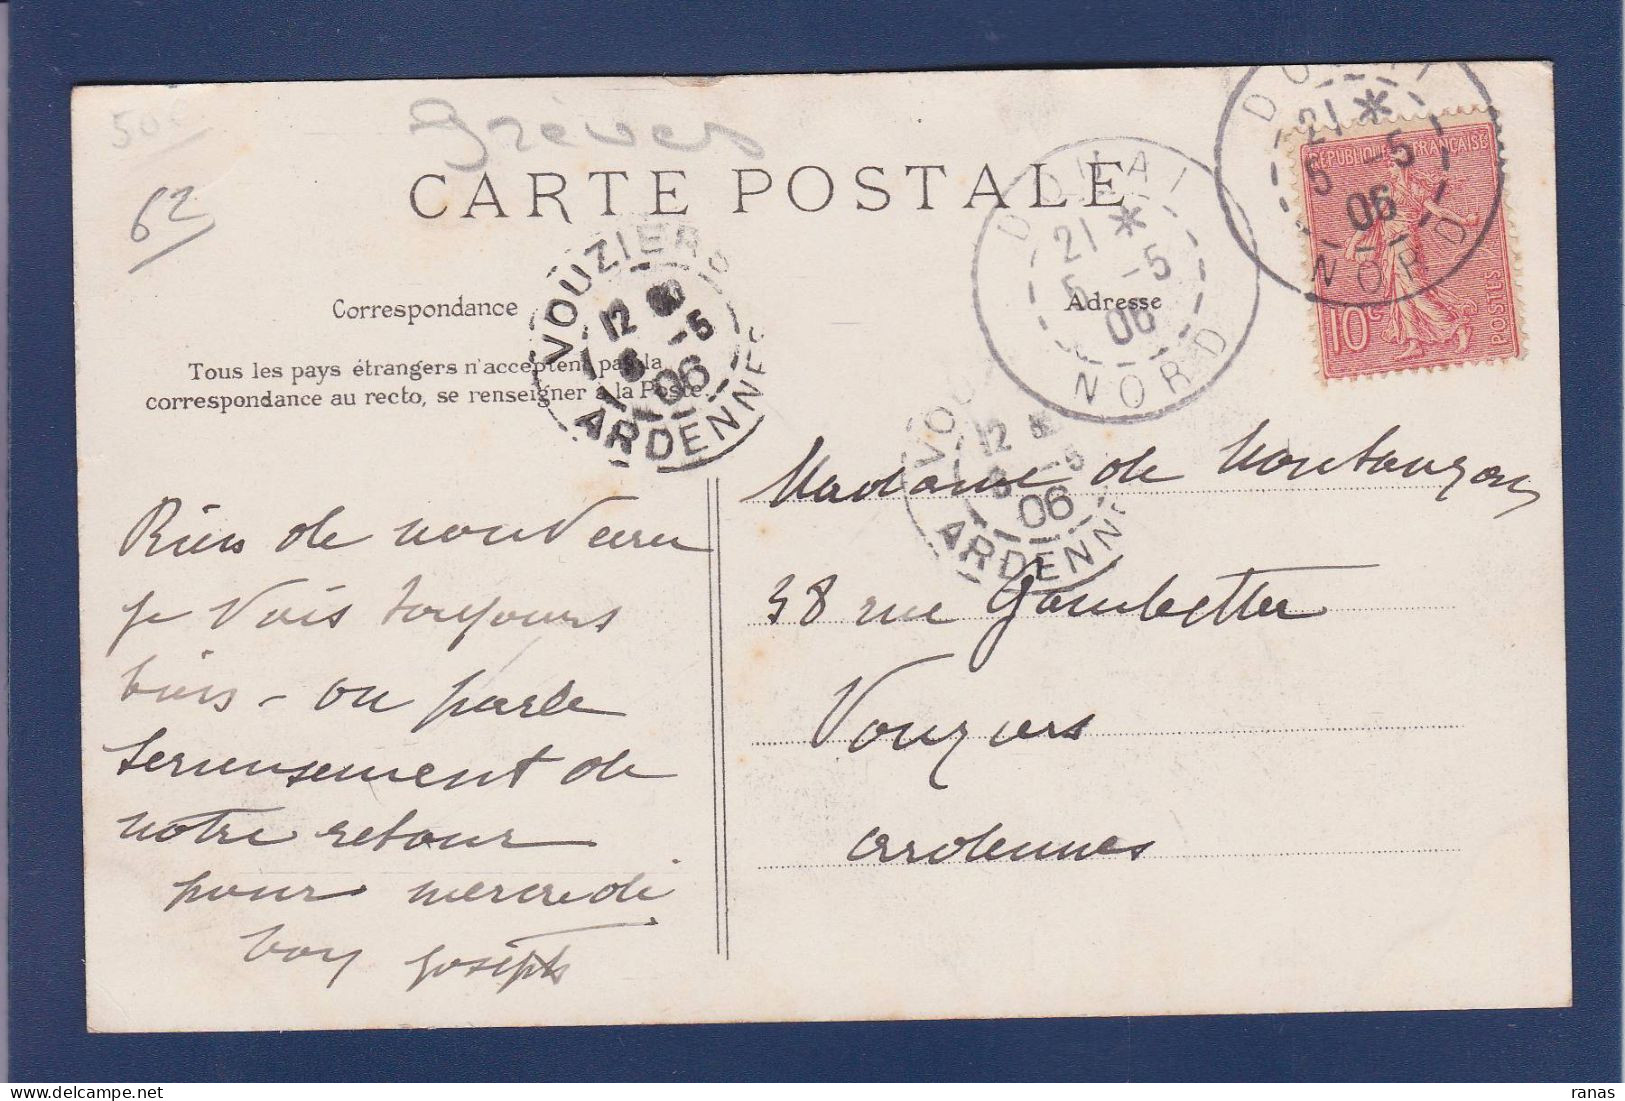 50€
Grèves
62
CARTE POSTALE
Correspondance
Adresse
Tous les pays étrangers n'acceptent pas la
correspondance au recto, se renseigner à la Poste.
VOUZIERS
12
6 -5
06
ARDENNES
DOUAI
21 *
5 -5
06
NORD
DOUAI
21 *
5 -5
06
NORD
RÉPUBLIQUE FRANÇAISE
10c
POSTES
VOU
12
6 -5
06
ARDENNE
Rien de nouveau
je vais toujours
bien - on parle
serieusement de
notre retour
pour mercredi
Joseph
Madame de Montauzon
38 rue Gambetta
Vouziers
Ardennes
ranas